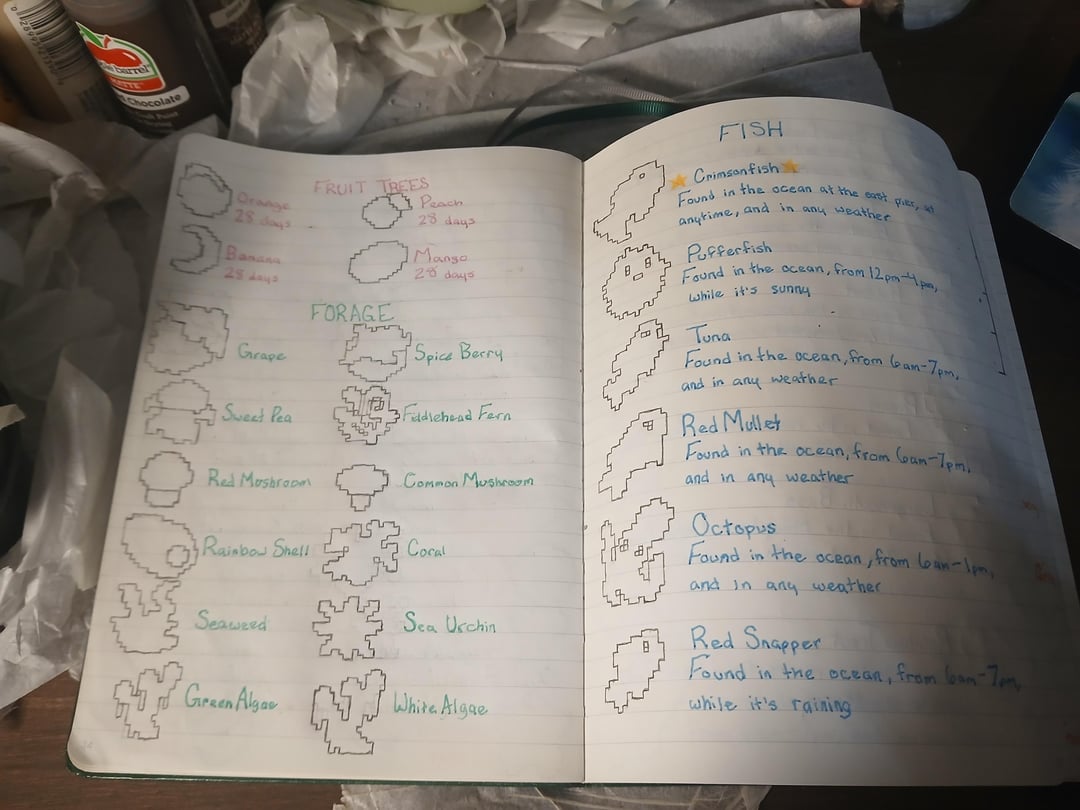 barrel
MATTE
Chocolate
FRUIT TREES
Orange
28 days
Peach
28 days
Banana
28 days
Mango
28 days
FORAGE
Grape
Spice Berry
Sweet Pea
Fiddlehead Fern
Red Mushroom
Common Mushroom
Rainbow Shell
Coral
Seaweed
Sea Urchin
Green Algae
White Algae
FISH
Crimsonfish
Found in the ocean at the east pier, at
anytime, and in any weather
Pufferfish
Found in the ocean, from 12pm-4pm,
while it's sunny
Tuna
Found in the ocean, from 6am-7pm,
and in any weather
Red Mullet
Found in the ocean, from 6am-7pm,
and in any weather
Octopus
Found in the ocean, from 6am-1pm,
and in any weather
Red Snapper
Found in the ocean, from 6am-7pm,
while it's raining